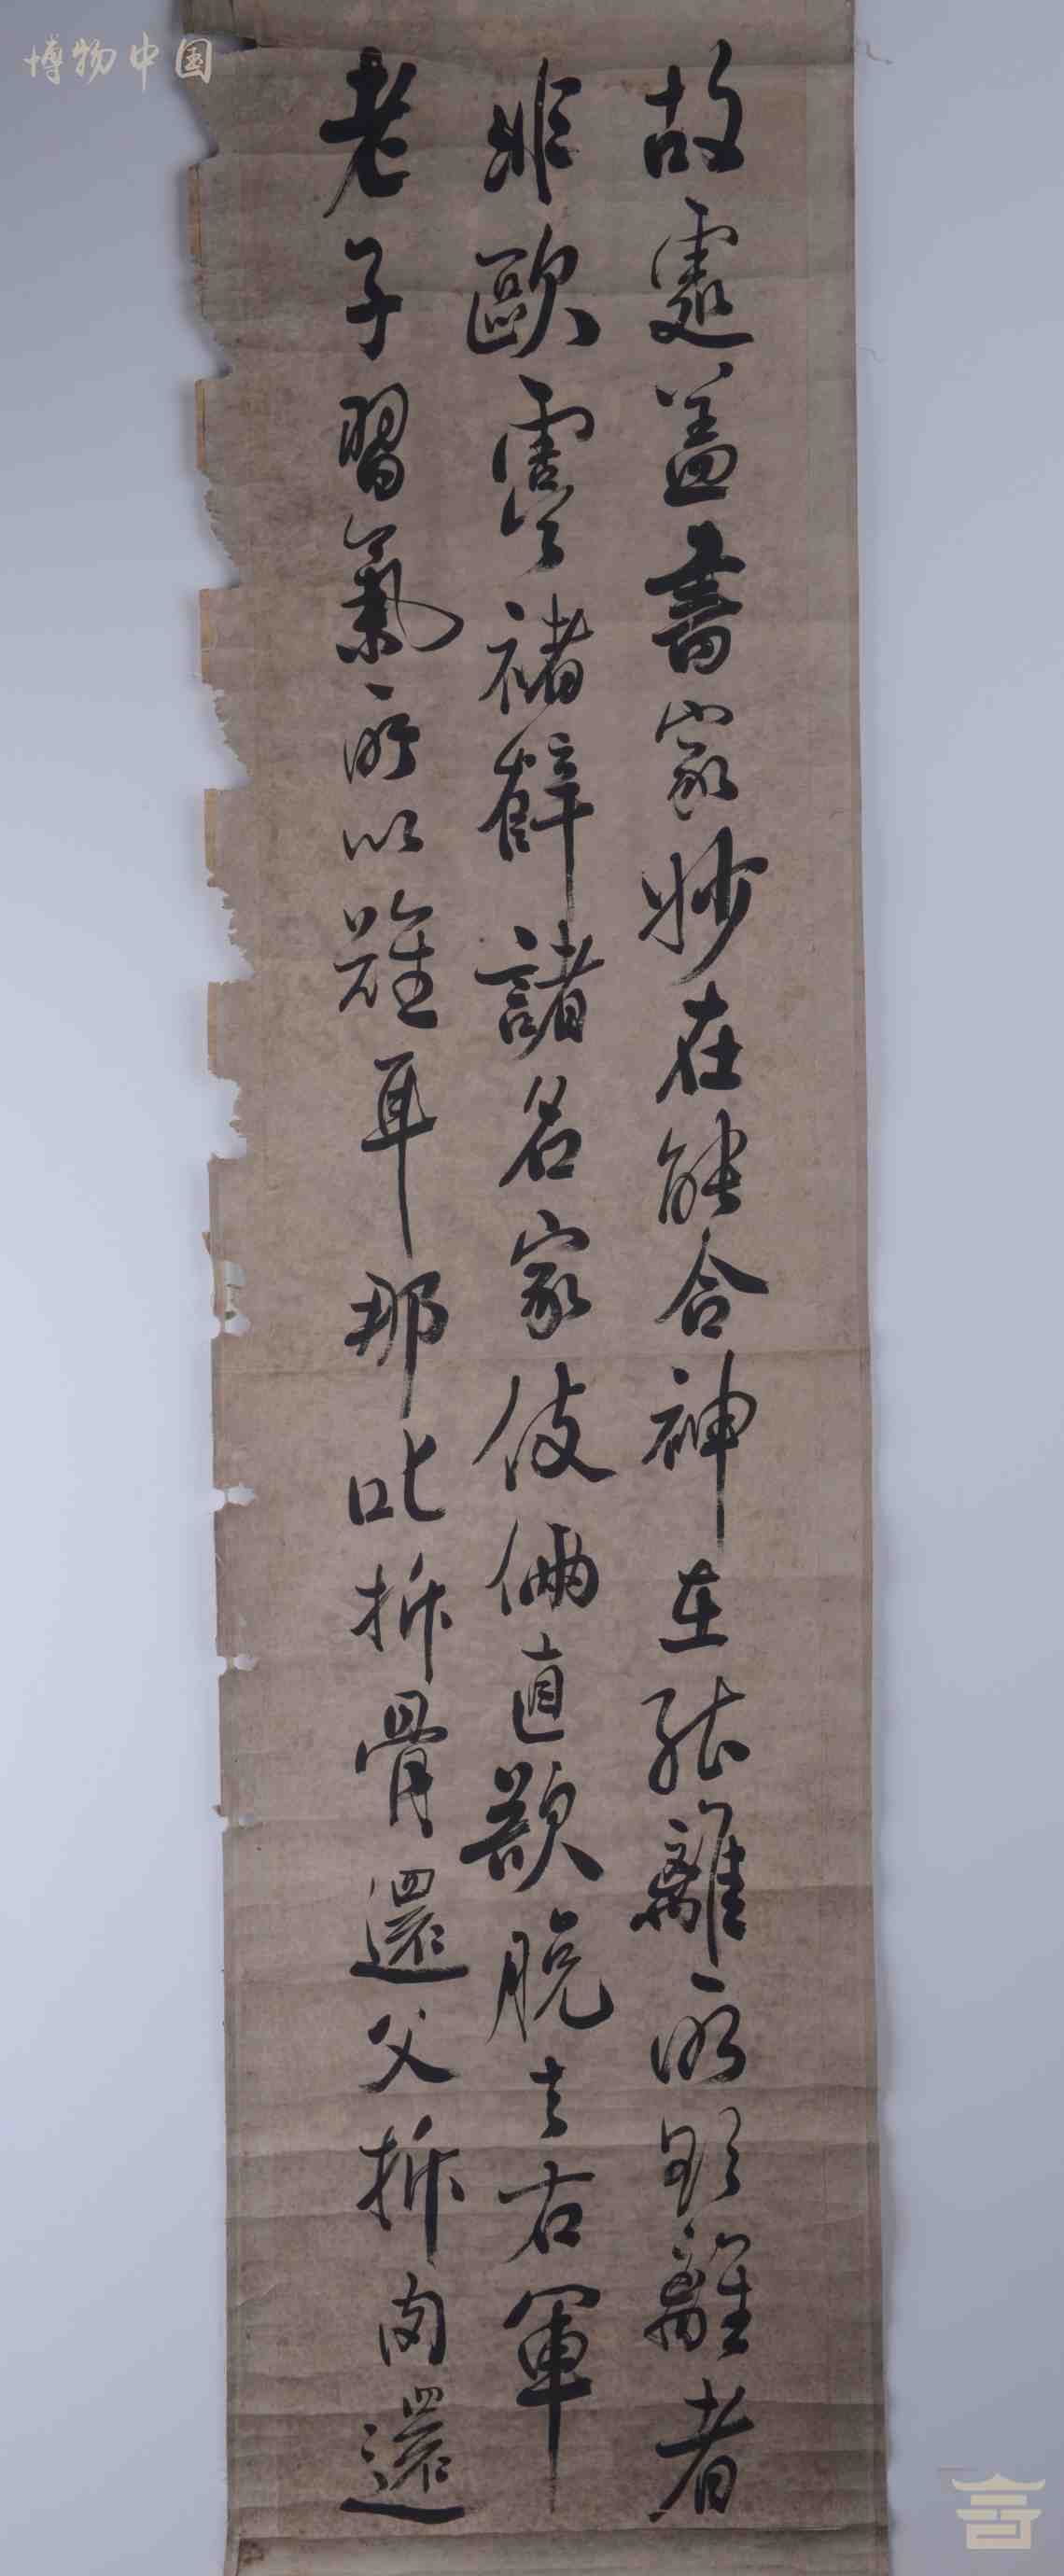 博物中国
故處蓋書家妙在能合神在能離所欲離者
非歐虞褚薛諸名家伎倆直欲脫去右軍
老子習氣所以難耳那叱拆骨還父拆肉還